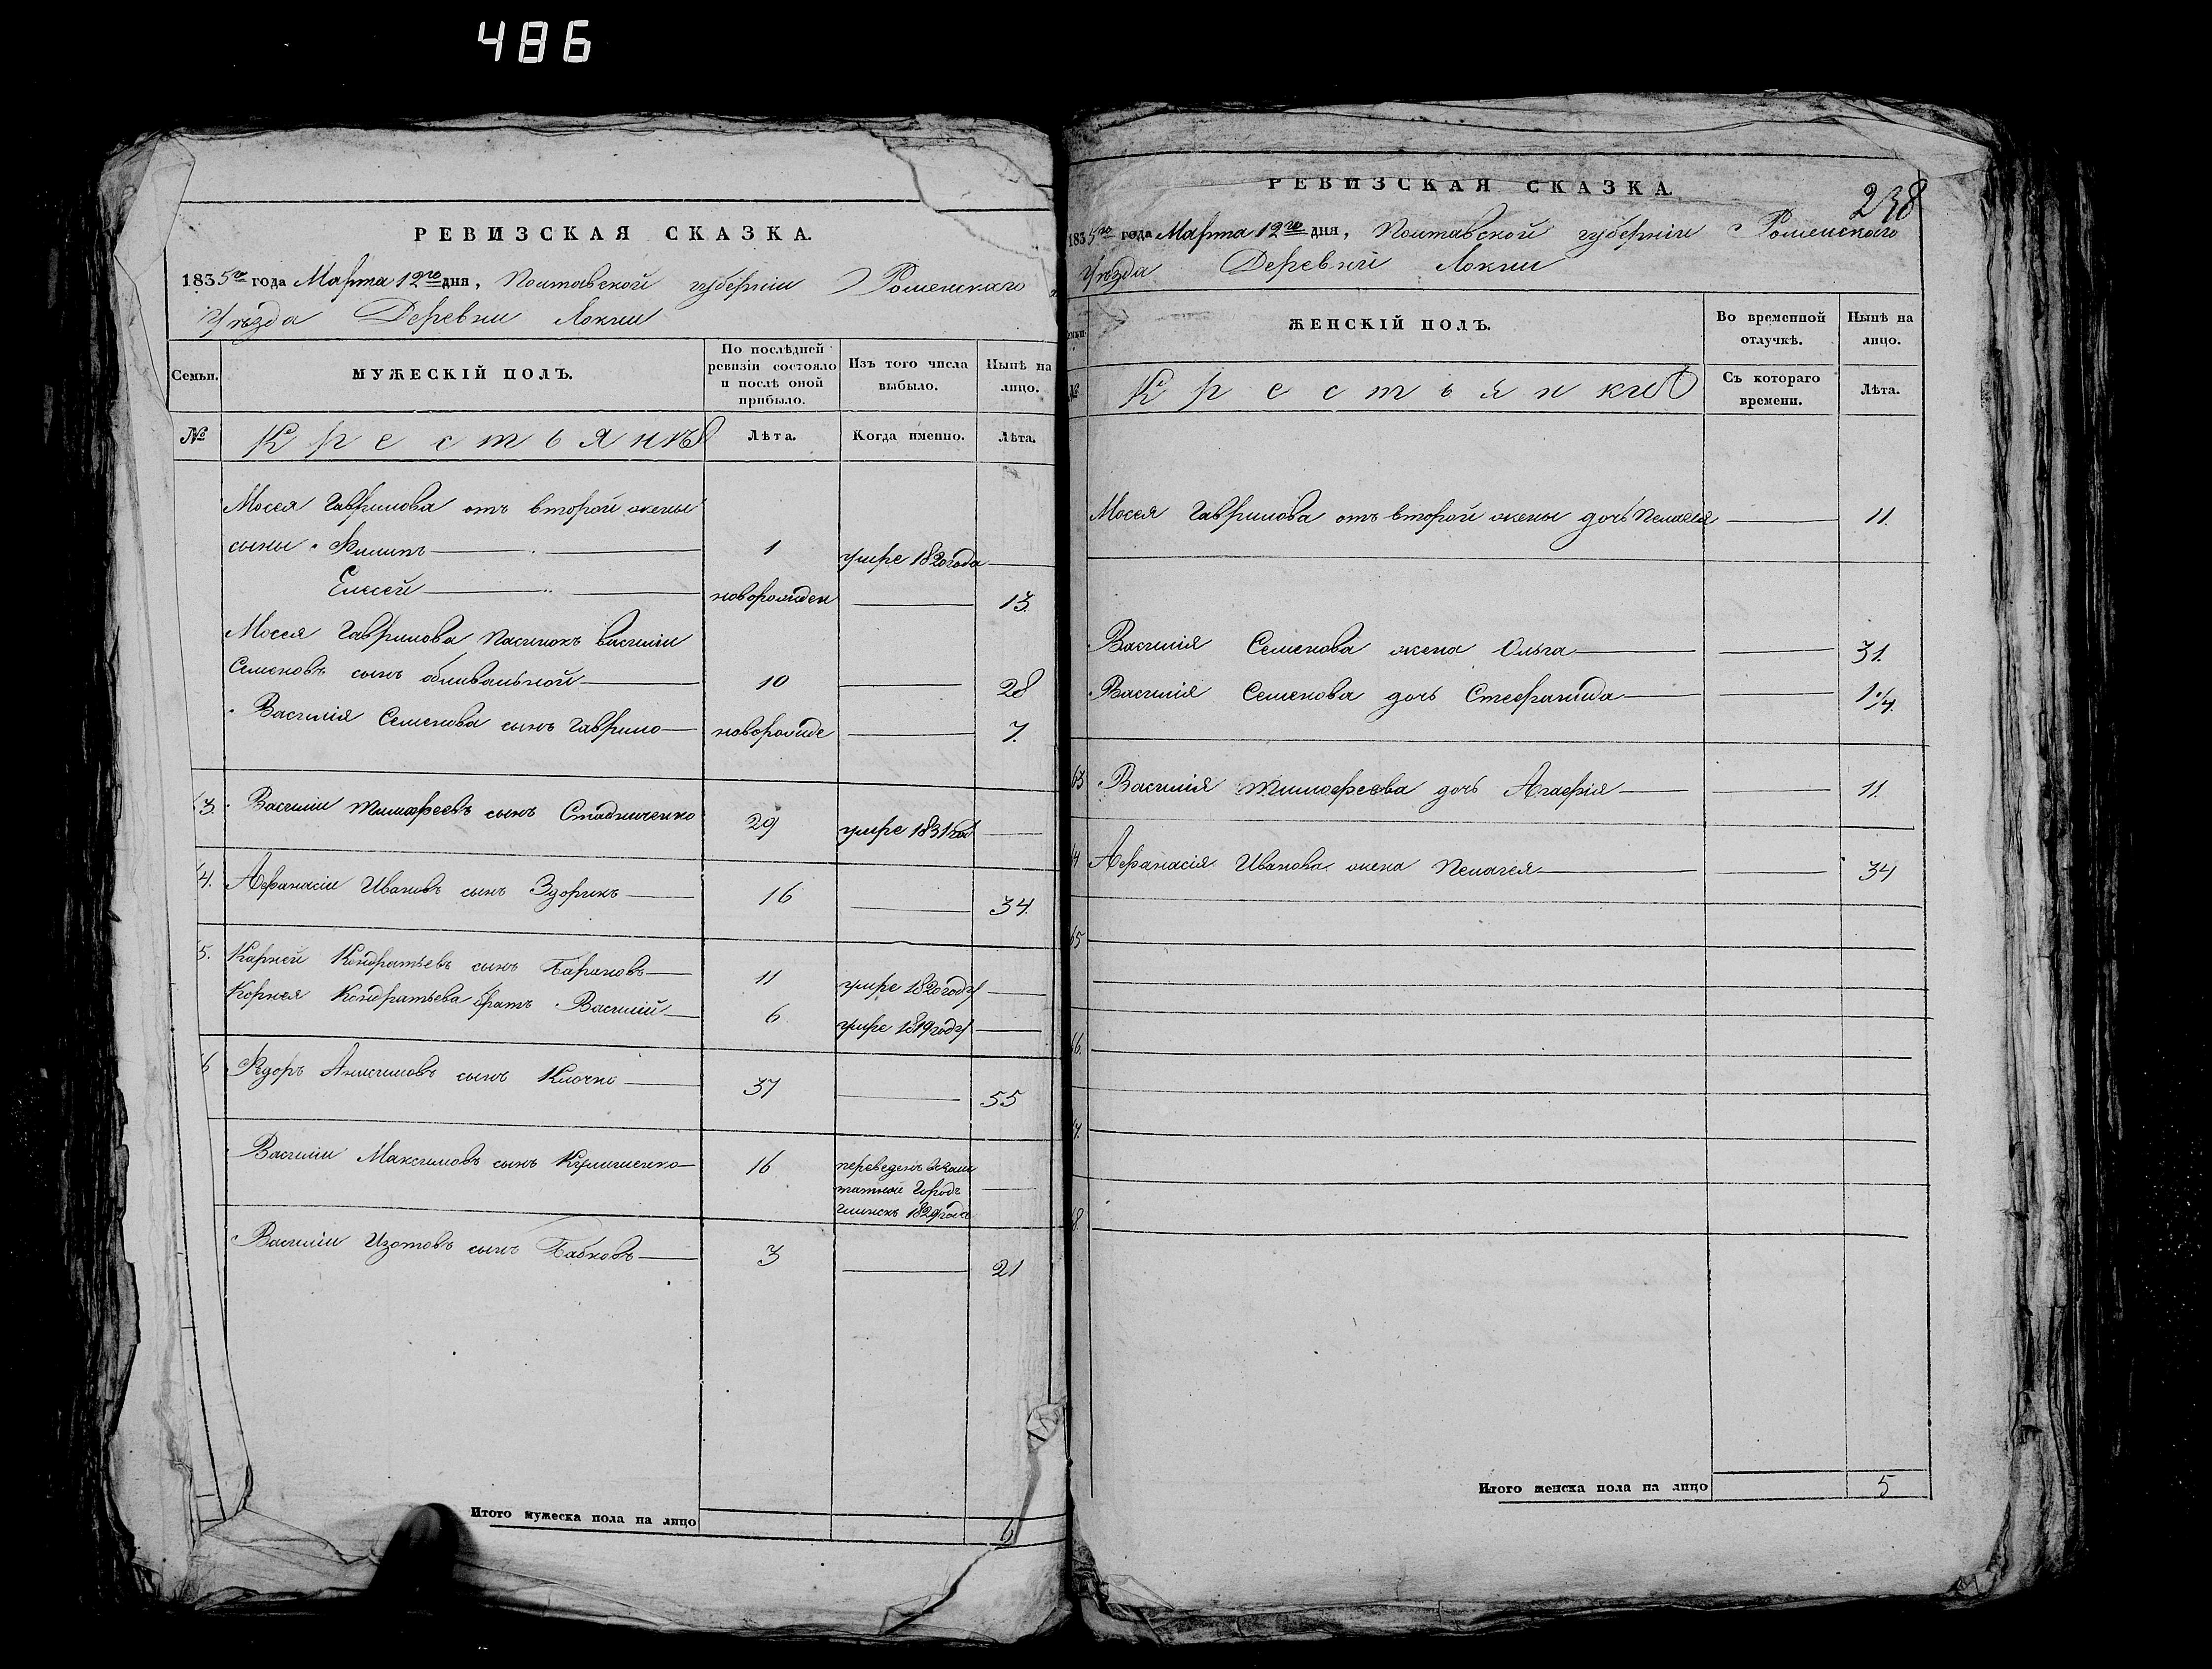 486
РЕВИЗСКАЯ СКАЗКА.
1835го года Марта 12го дня, Полтавской губернии Роменскаго
Уѣзда Деревни Локни
Семьи.
МУЖЕСКІЙ ПОЛЪ.
По послѣдней ревизіи состояло и послѣ оной прибыло.
Изъ того числа выбыло.
Нынѣ на лицо.
№
Крестьянъ
Лѣта.
Когда именно.
Лѣта.
Мосея Гаврилова отъ второй жены
сыны Филипъ 1 умре 1820 года
Елесей новорожден 13.
Мосея Гаврилова пасинокъ василіи
Семеновъ сынъ 10 28
Василія Семенова сынъ Гаврило новорожде 7.
3. Василіи Тимофеевъ сынъ Стадниченко 29 умре 1831 год
4. Афанасіи Ивановъ сынъ Здорикъ 16 34.
5. Карней Кондратьевъ сынъ Барановъ 11 умре 1820 году
Корнея Кондратьева братъ Василій 6 умре 1819 году
6 Фдоръ сынъ Клочко 37 55
Василіи Максимовъ сынъ 16 переведенъ
Городъ
Глинскъ 1829 года
Василіи Изотовъ сынъ Бабковъ 3 21
Итого мужеска пола на лицо 6
РЕВИЗСКАЯ СКАЗКА.
238
1835го года Марта 12го дня, Полтавской губерніи Роменскаго
Уѣзда Деревни Локни
ЖЕНСКІЙ ПОЛЪ.
Во временной отлучкѣ.
Нынѣ на лицо.
№
Крестьянки
Съ котораго времени.
Лѣта.
Мосея Гаврилова отъ второй жены дочь Пелагея 11.
Василія Семенова жена Ольга 31.
Василія Семенова дочь Стефанида 1 1/4.
63 Василія Тимофеева дочь Агафія 11.
Афанасія Иванова жена Пелагея 34
65
66.
Итого женска пола на лицо 5